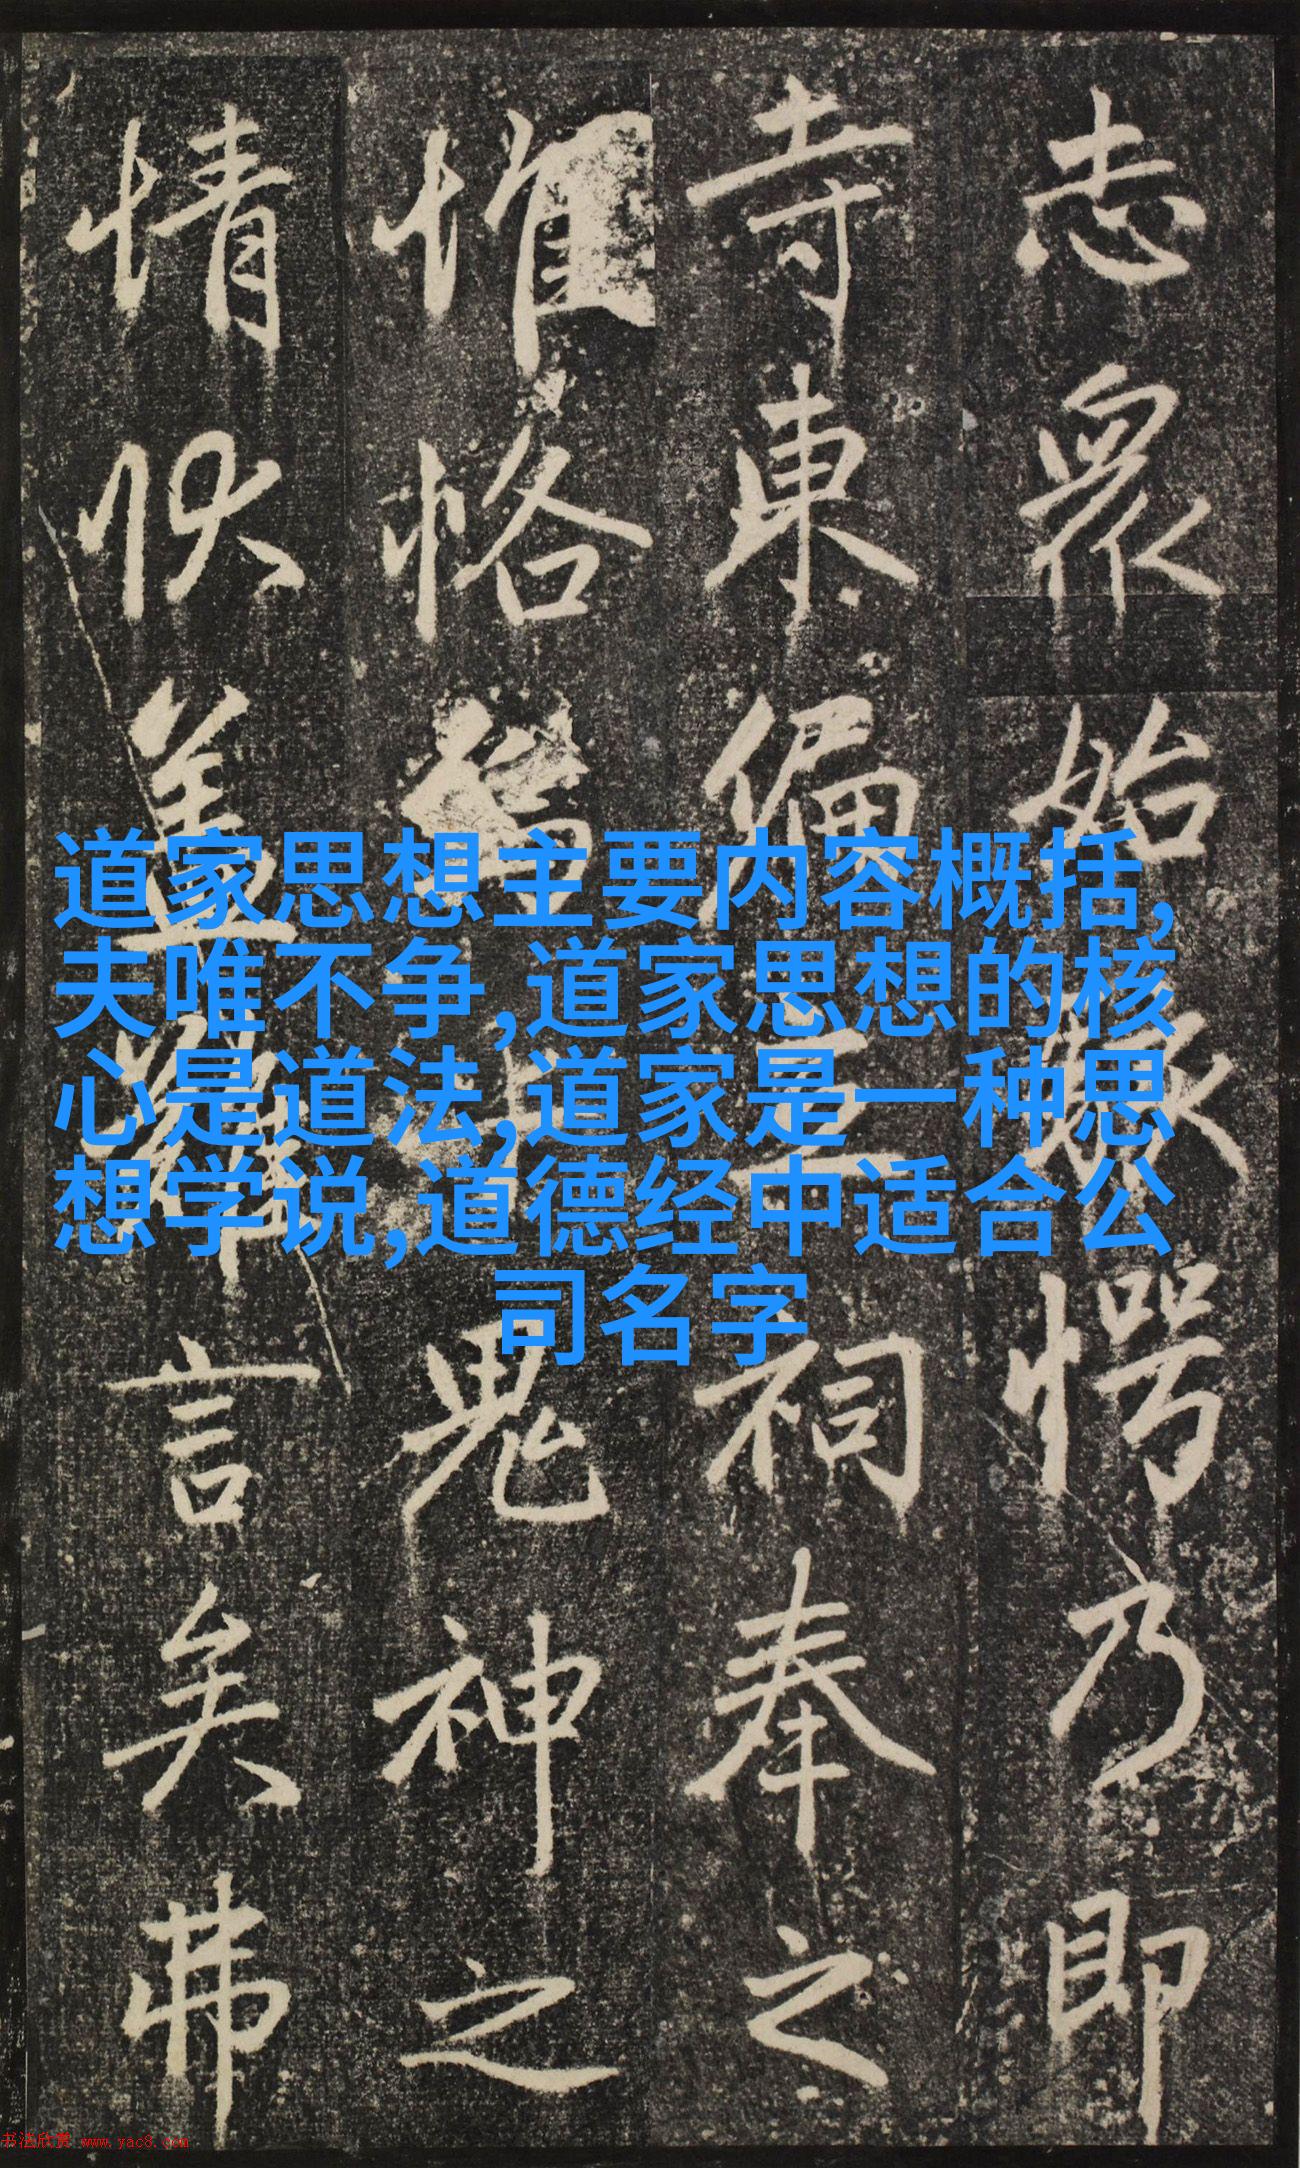 志眾始駭愕乃即
寺東偏立祠奉之
惟恪鬼神之
情状盖難言矣弗
道家思想主要内容概括,
夫唯不争,道家思想的核
心是道法,道家是一种思
想学说,道德经中适合公
司名字
书法欣赏 www.yac8.com